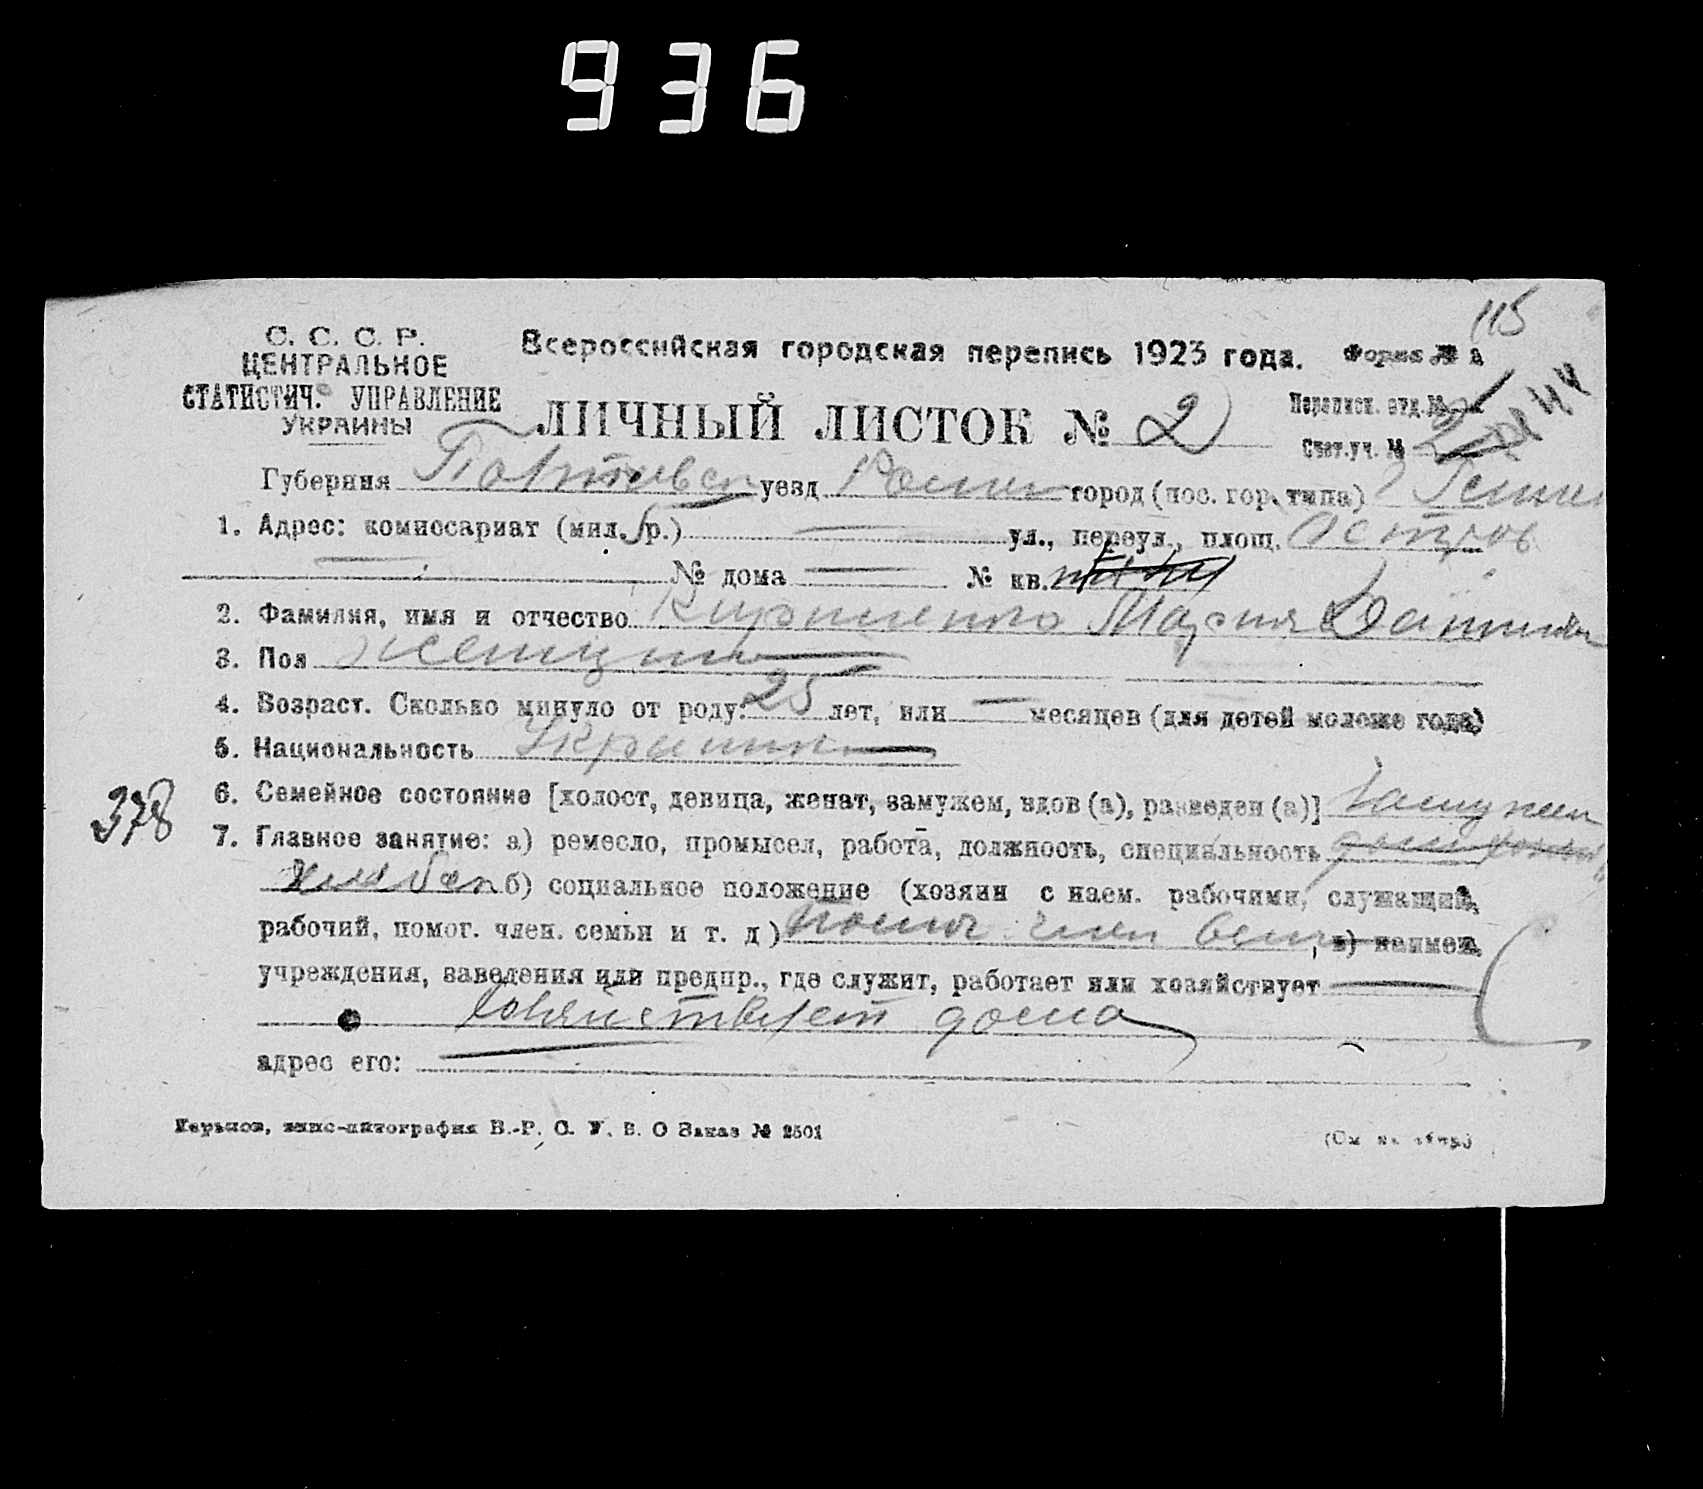 936
115
С. С. С. Р.
ЦЕНТРАЛЬНОЕ
СТАТИСТИЧ. УПРАВЛЕНИЕ
УКРАИНЫ
Всероссийская городская перепись 1923 года. Форма № А
ЛИЧНЫЙ ЛИСТОК № 2
Переписн. отд. №
Счет. уч. №
Губерния Полтавск уезд Ромен город (пос. гор. типа) г Ромны
1. Адрес: комиссариат (мил. р.) — ул., переул., площ.
— № дома — № кв.
2. Фамилия, имя и отчество Кириченко Мария
3. Пол женщина
4. Возраст. Сколько минуло от роду: 25 лет, или — месяцев (для детей моложе года)
5. Национальность Украинка
378
6. Семейное состояние [холост, девица, женат, замужем, вдов (а), разведен (а)] Замужем
7. Главное занятие: а) ремесло, промысел, работа, должность, специальность
б) социальное положение (хозяин с наем. рабочими, служащий,
рабочий, помог. член. семьи и т. д) помог член семьи, в) наимен.
учреждения, заведения или предпр., где служит, работает или хозяйствует —
хозяйствует дома
адрес его: —
Харьков, В.-Р. С. У. В. О Заказ № 2501